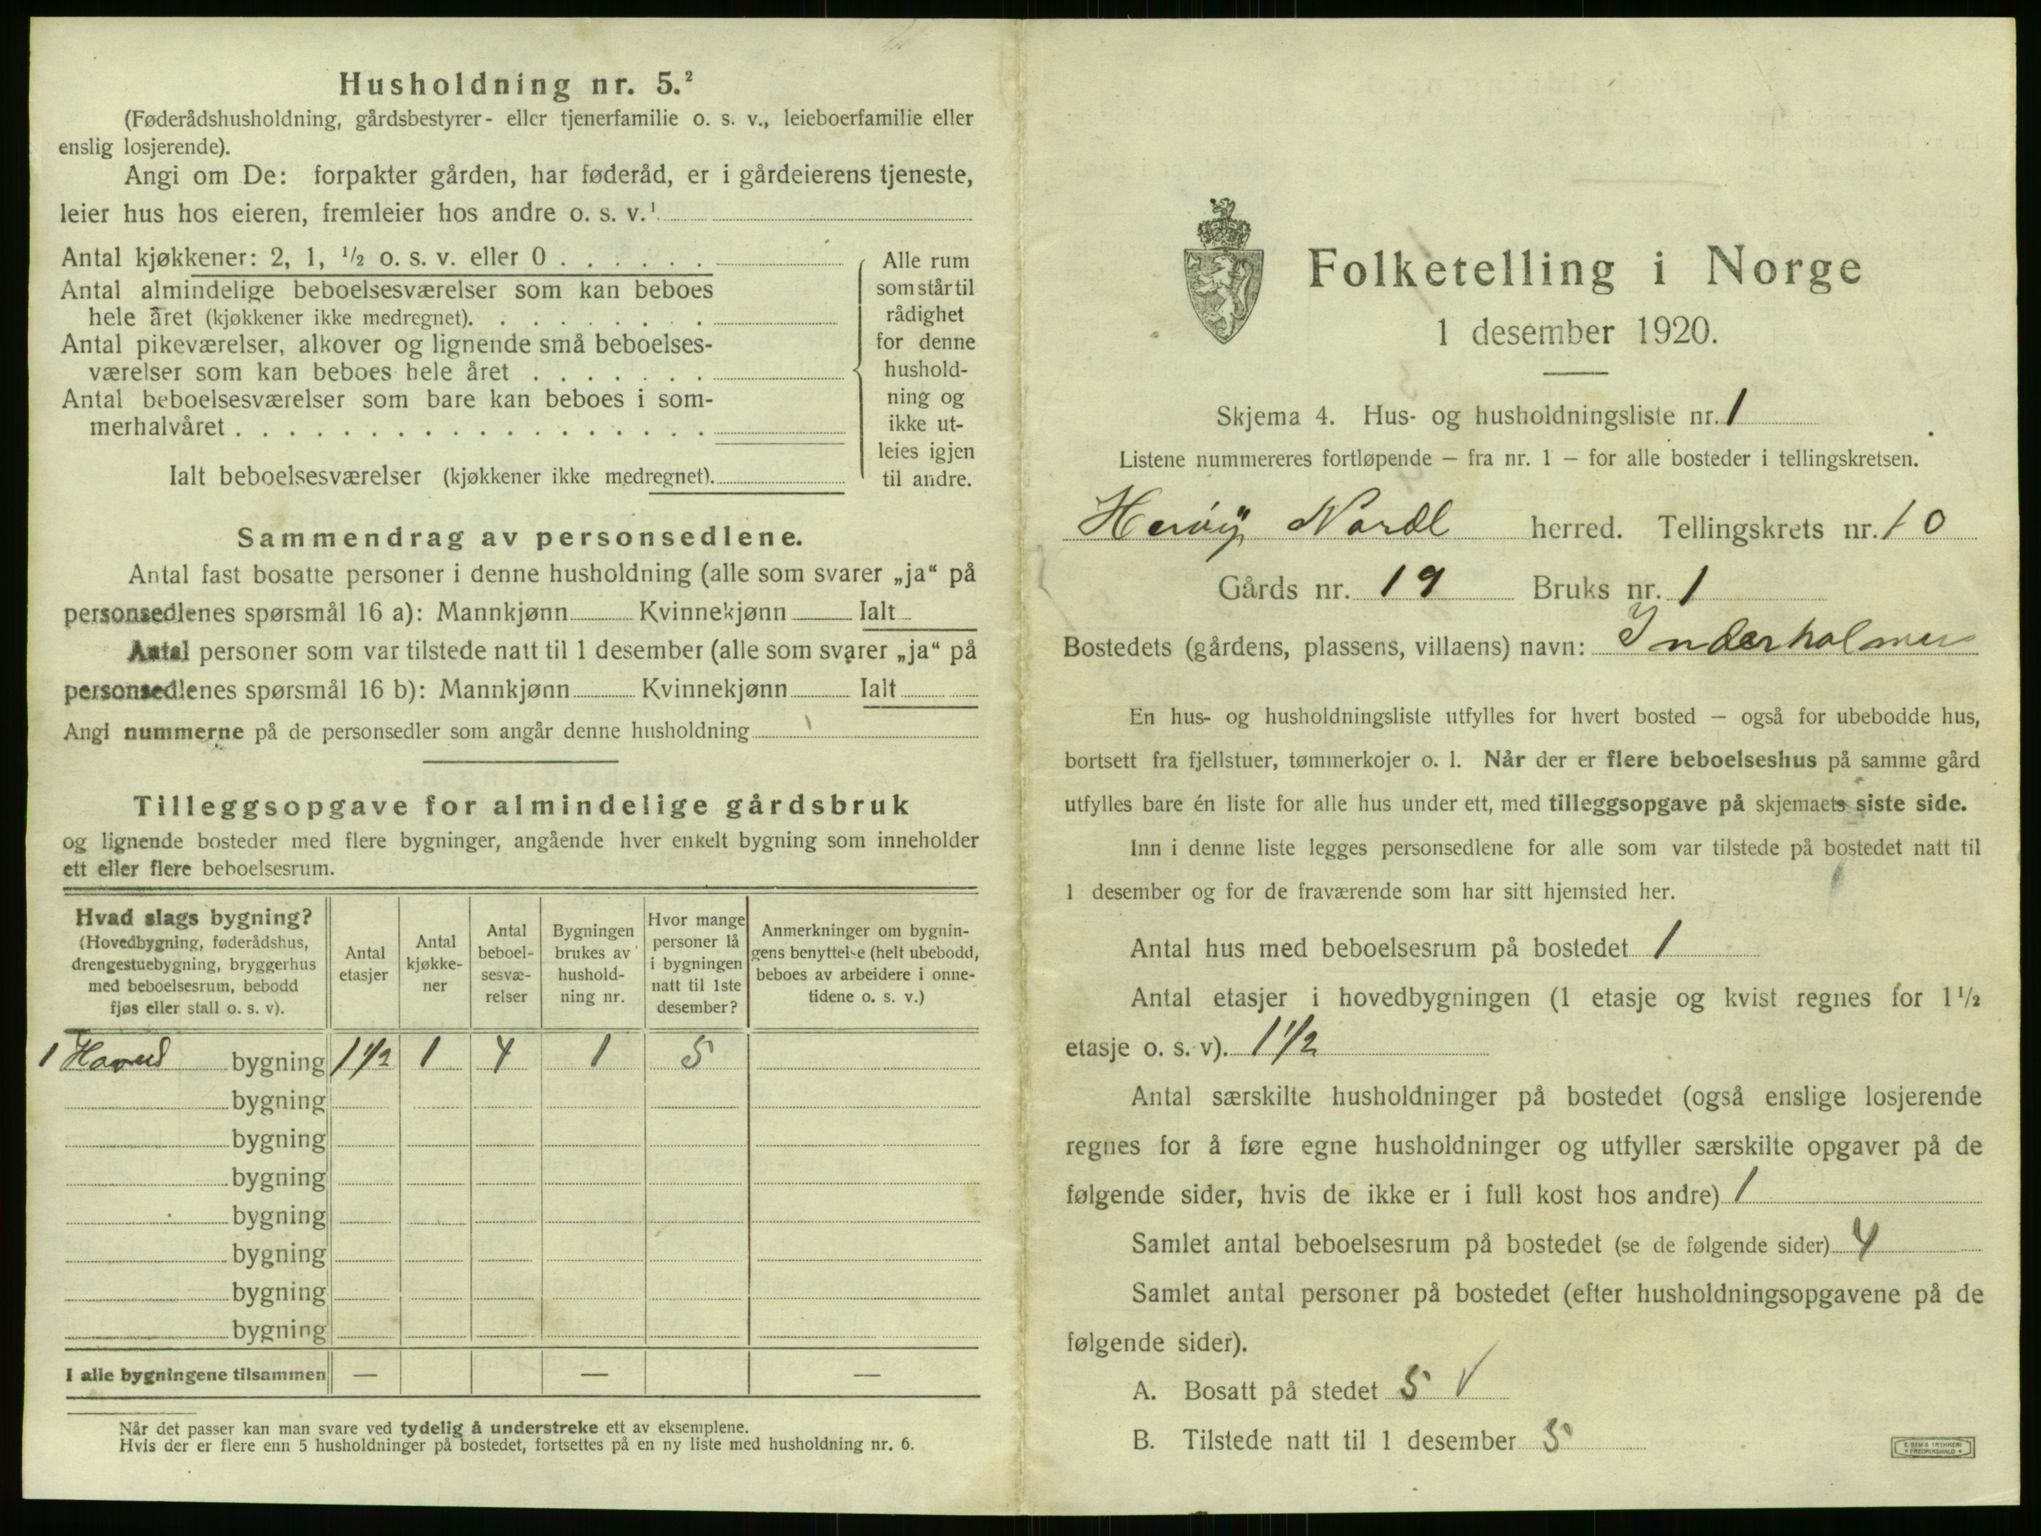 Husholdning nr. 5.²
(Føderådshusholdning, gårdsbestyrer- eller tjenerfamilie o. s. v., leieboerfamilie eller
enslig losjerende).
Angi om De: forpakter gården, har føderåd, er i gårdeierens tjeneste,
leier hus hos eieren, fremleier hos andre o. s. v.¹
Antal kjøkkener: 2, 1, ½ o. s. v. eller 0 . . . . . .
Antal almindelige beboelsesværelser som kan beboes
hele året (kjøkkener ikke medregnet). . . . . . . . .
Antal pikeværelser, alkover og lignende små beboelses-
værelser som kan beboes hele året . . . . . . .
Antal beboelsesværelser som bare kan beboes i som-
merhalvåret . . . . . . . . . . . . . . . . . .
Ialt beboelsesværelser (kjøkkener ikke medregnet).
Alle rum
som står til
rådighet
for denne
hushold-
ning og
ikke ut-
leies igjen
til andre.
Sammendrag av personsedlene.
Antal fast bosatte personer i denne husholdning (alle som svarer „ja“ på
personsedlenes spørsmål 16 a): Mannkjønn Kvinnekjønn Ialt
Antal personer som var tilstede natt til 1 desember (alle som svarer „ja“ på
personsedlenes spørsmål 16 b): Mannkjønn Kvinnekjønn Ialt
Angi nummerne på de personsedler som angår denne husholdning
Tilleggsopgave for almindelige gårdsbruk
og lignende bosteder med flere bygninger, angående hver enkelt bygning som inneholder
ett eller flere beboelsesrum.
Hvad slags bygning?
(Hovedbygning, føderådshus,
drengestuebygning, bryggerhus
med beboelsesrum, bebodd
fjøs eller stall o. s. v).
Antal
etasjer
Antal
kjøkke-
ner
Antal
beboel-
sesvæ-
relser
Bygningen
brukes av
hushold-
ning nr.
Hvor mange
personer lå
i bygningen
natt til 1ste
desember?
Anmerkninger om bygnin-
gens benyttelse (helt ubebodd,
beboes av arbeidere i onne-
tidene o. s. v.)
1 Hoved bygning 1 1/2 1 4 1 5
bygning
bygning
bygning
bygning
bygning
bygning
bygning
I alle bygningene tilsammen — — —
Når det passer kan man svare ved tydelig å understreke ett av eksemplene.
Hvis der er flere enn 5 husholdninger på bostedet, fortsettes på en ny liste med husholdning nr. 6.
Folketelling i Norge
1 desember 1920.
Skjema 4. Hus- og husholdningsliste nr. 1
Listene nummereres fortløpende – fra nr. 1 – for alle bosteder i tellingskretsen.
Herøy Nordl herred. Tellingskrets nr. 10
Gårds nr. 19 Bruks nr. 1
Bostedets (gårdens, plassens, villaens) navn: Inderholmen
En hus- og husholdningsliste utfylles for hvert bosted – også for ubebodde hus,
bortsett fra fjellstuer, tømmerkojer o. l. Når der er flere beboelseshus på samme gård
utfylles bare én liste for alle hus under ett, med tilleggsopgave på skjemaets siste side.
Inn i denne liste legges personsedlene for alle som var tilstede på bostedet natt til
1 desember og for de fraværende som har sitt hjemsted her.
Antal hus med beboelsesrum på bostedet 1
Antal etasjer i hovedbygningen (1 etasje og kvist regnes for 1 ½
etasje o. s. v). 1 1/2
Antal særskilte husholdninger på bostedet (også enslige losjerende
regnes for å føre egne husholdninger og utfyller særskilte opgaver på de
følgende sider, hvis de ikke er i full kost hos andre) 1
Samlet antal beboelsesrum på bostedet (se de følgende sider) 4
Samlet antal personer på bostedet (efter husholdningsopgavene på de
følgende sider).
A. Bosatt på stedet 5 √
B. Tilstede natt til 1 desember 5